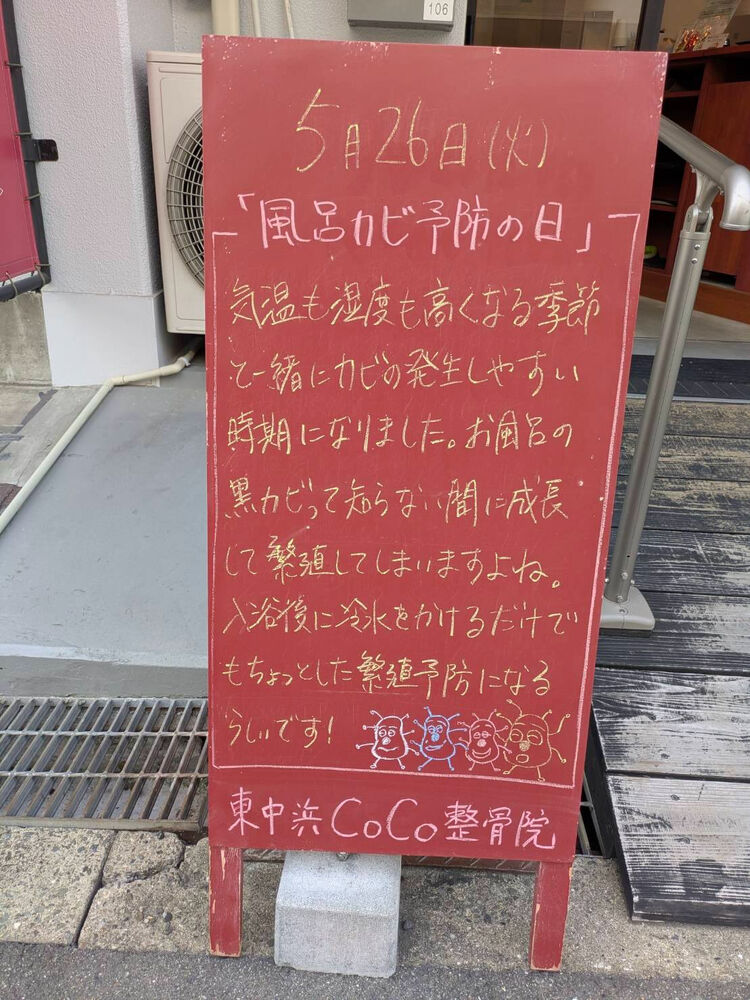 106
5月26日(火)
「風呂カビ予防の日」
気温も湿度も高くなる季節
で一緒にカビの発生しやすい
時期になりました。お風呂の
黒カビって知らない間に成長
して繁殖してしまいますよね。
入浴後に冷水をかけるだけで
もちょっとした繁殖予防になる
らしいです!
東中浜CoCo整骨院